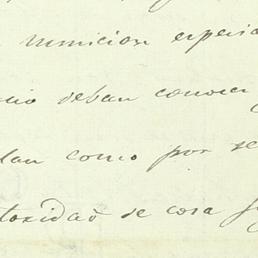 municion especi
cio deban conocer
dan como por se
toridad de cosa ju